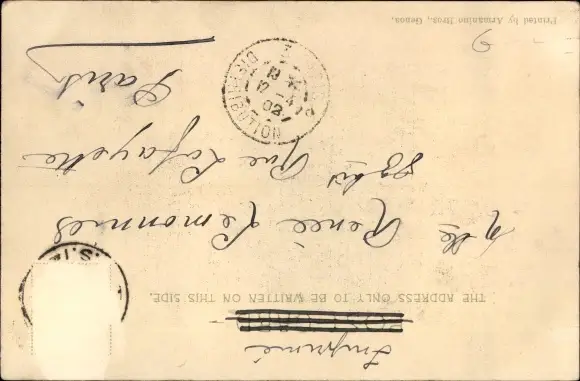 Imprimé
POST CARD
THE ADDRESS ONLY TO BE WRITTEN ON THIS SIDE.
Mlle Renée Lemonnier
83 bis Rue Lafayette
Paris
DISTRIBUTION
17 - 4
02
Printed by Armanino Bros., Genoa.